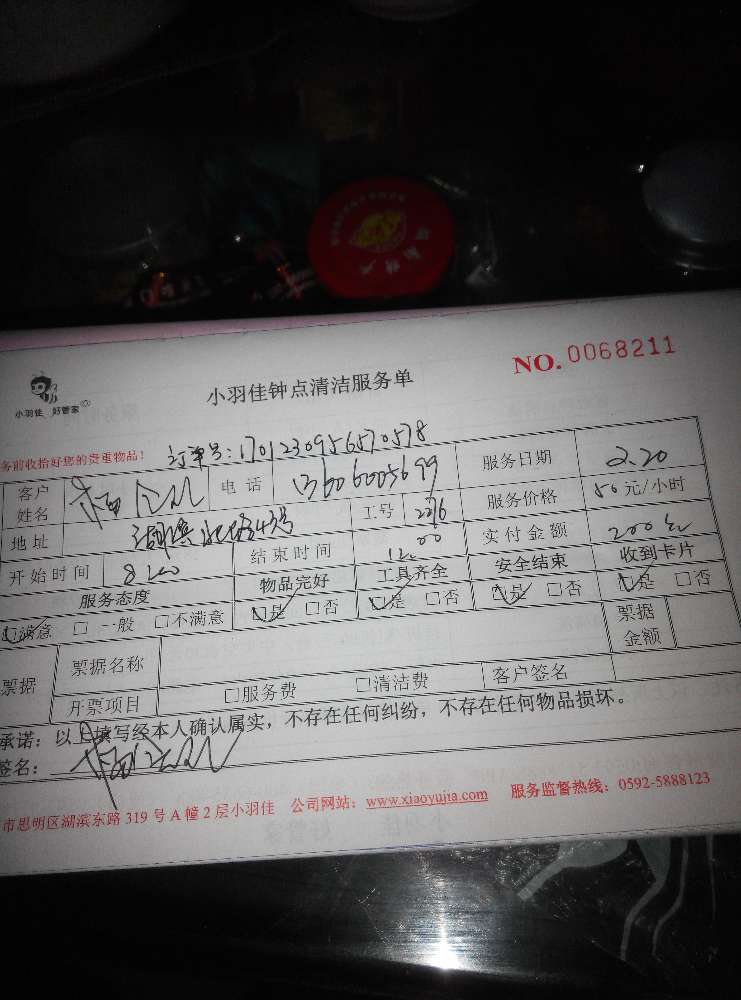 NO.0068211
小羽佳 好管家
小羽佳钟点清洁服务单
务前收拾好您的贵重物品!
订单号:1701230956570578
客户姓名 电话 13606005699 服务日期 2.20
地址 湖滨北路43号 工号 2216 服务价格 50元/小时
开始时间 8:00 结束时间 12:00 实付金额 200元
服务态度 物品完好 工具齐全 安全结束 收到卡片
☑满意 □一般 □不满意 ☑是 □否 ☑是 □否 ☑是 □否 ☑是 □否
票据 票据名称 票据金额
开票项目 □服务费 □清洁费 客户签名
承诺:以上填写经本人确认属实,不存在任何纠纷,不存在任何物品损坏。
签名:
市思明区湖滨东路319号A幢2层小羽佳 公司网站:www.xiaoyujia.com 服务监督热线:0592-5888123